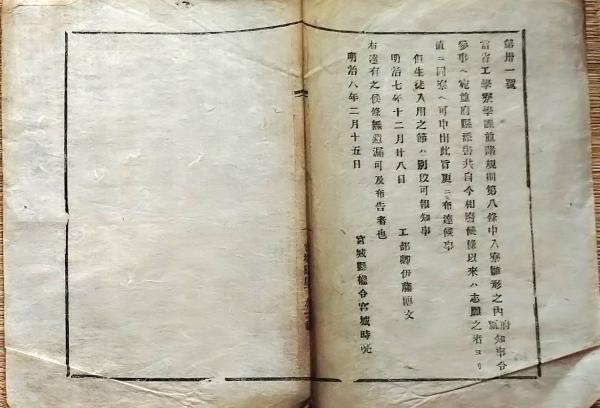 第卅一號
當省工學寮學課並諸規則第八條中入寮雛形之內府縣知事令
參事ヘ宛並府縣添書共自今相廢候條以來ハ志願之者ヨリ
直ニ同寮ヘ可申出此旨更ニ布達候事
但生徒入用之節ハ別段可報知事
明治七年十二月廿八日
工部卿伊藤博文
右達有之候條無遺漏可及布告者也
明治八年二月十五日
宮城縣權令宮城時亮